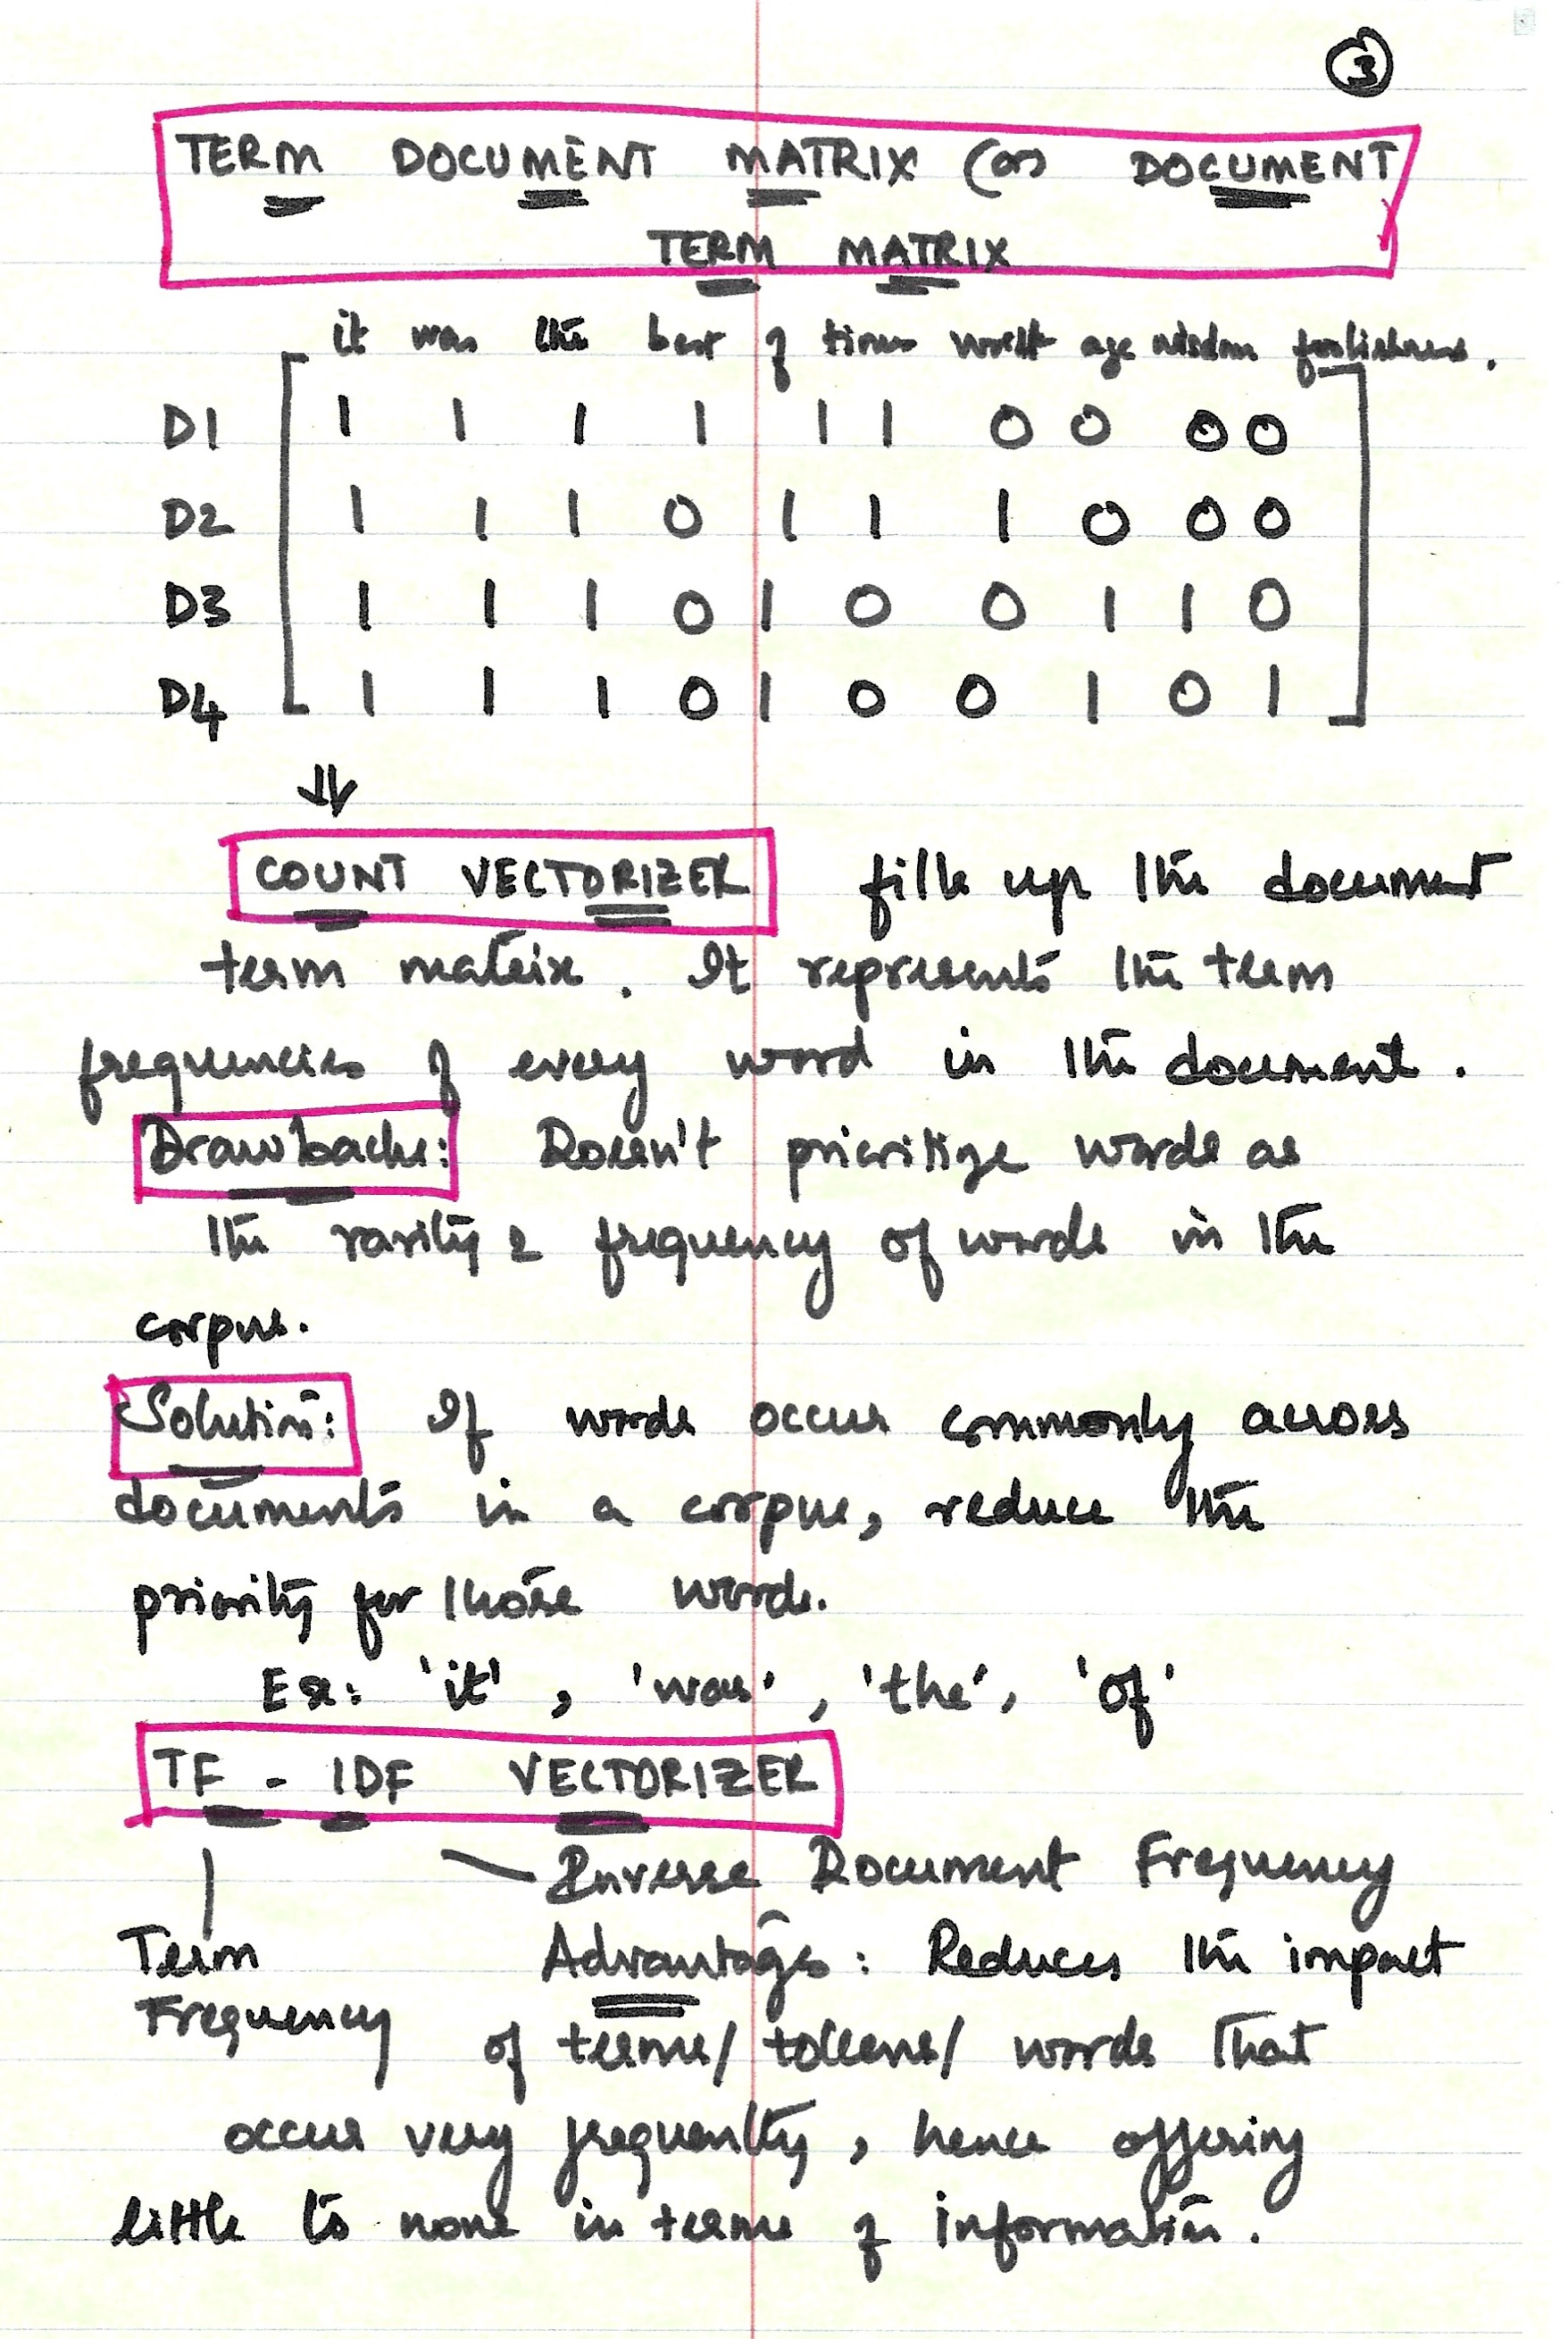 3
TERM DOCUMENT MATRIX (or DOCUMENT
TERM MATRIX
it was the best of times worst age wisdom foolishness.
D1 1 1 1 1 1 1 0 0 0 0
D2 1 1 1 0 1 1 1 0 0 0
D3 1 1 1 0 1 0 0 1 1 0
D4 1 1 1 0 1 0 0 1 0 1
COUNT VECTORIZER fills up the document
term matrix. It represents the term
frequencies of every word in the document.
Drawbacks: Doesn't prioritize words as
the rarity & frequency of words in the
corpus.
Solution: If words occur commonly across
documents in a corpus, reduce the
priority for those words.
Ex: 'it', 'was', 'the', 'of'
TF - IDF VECTORIZER
Inverse Document Frequency
Term Advantages: Reduces the impact
Frequency of terms/ tokens/ words that
occur very frequently, hence offering
little to none in terms of information.